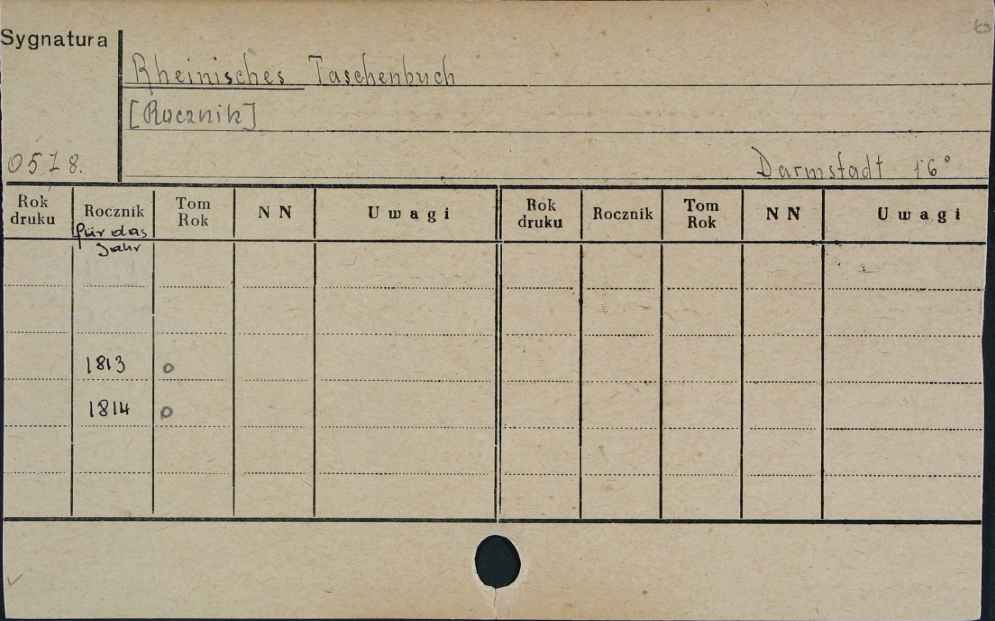 Sygnatura
Rheinisches Taschenbuch
[Rocznik]
0578.
Darmstadt 16°
Rok druku Rocznik Tom Rok NN Uwagi Rok druku Rocznik Tom Rok NN Uwagi
für das
Jahr
1813 o
1814 o